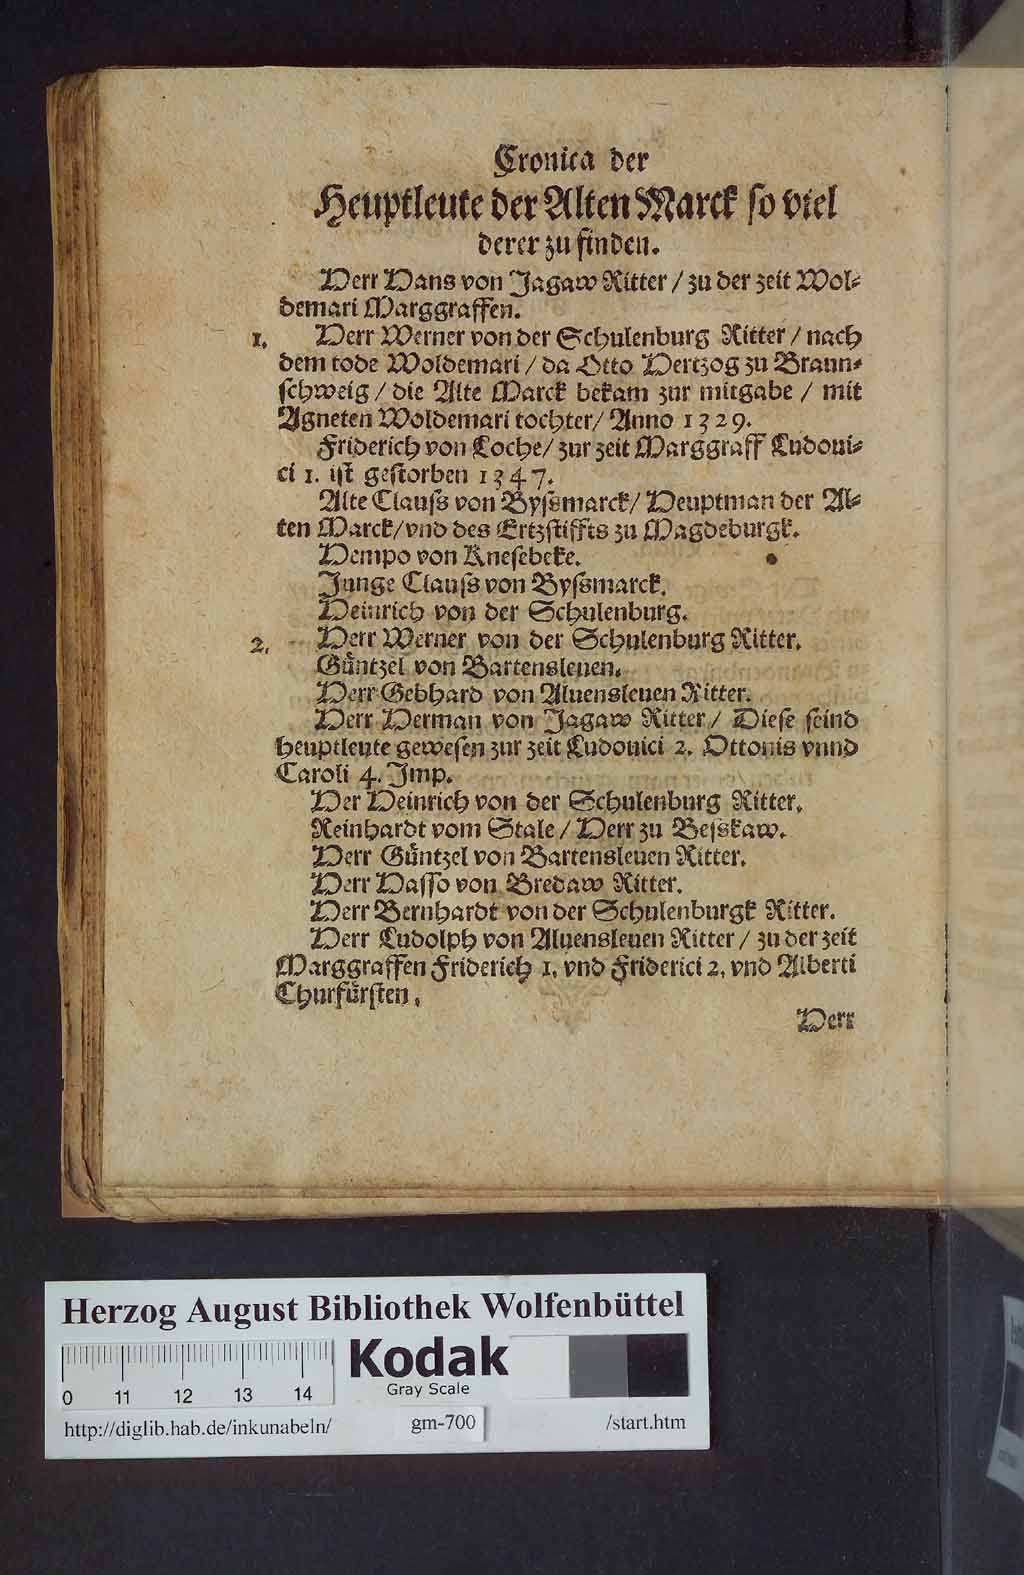 Cronica der
Heuptleute der Alten Marck so viel
derer zu finden.
Herr Hans von Jagaw Ritter / zu der zeit Wol⸗
demari Marggraffen.
1. Herr Werner von der Schulenburg Ritter / nach
dem tode Woldemari / da Otto Hertzog zu Braun⸗
schweig / die Alte Marck bekam zur mitgabe / mit
Agneten Woldemari tochter / Anno 1329.
Friderich von Loche / zur zeit Marggraff Ludoui⸗
ci 1. ist gestorben 1347.
Alte Clauss von Byssmarck / Heuptman der Al⸗
ten Marck / vnd des Ertzstiffts zu Magdeburgk.
Hempo von Knesebeke.
Junge Clauss von Byssmarck.
Heinrich von der Schulenburg.
2. Herr Werner von der Schulenburg Ritter.
Güntzel von Bartensleuen.
Herr Gebhard von Aluensleuen Ritter.
Herr Herman von Jagaw Ritter / Diese seind
heuptleute gewesen zur zeit Ludouici 2. Ottonis vnnd
Caroli 4. Imp.
Her Heinrich von der Schulenburg Ritter.
Reinhardt vom Stale / Herr zu Besskaw.
Herr Güntzel von Bartensleuen Ritter.
Herr Hasso von Bredaw Ritter.
Herr Bernhardt von der Schulenburgk Ritter.
Herr Ludolph von Aluensleuen Ritter / zu der zeit
Marggraffen Friderich 1. vnd Friderici 2. vnd Alberti
Churfürsten.
Herr
Herzog August Bibliothek Wolfenbüttel
Kodak
Gray Scale
0 11 12 13 14
http://diglib.hab.de/inkunabeln/ gm-700 /start.htm